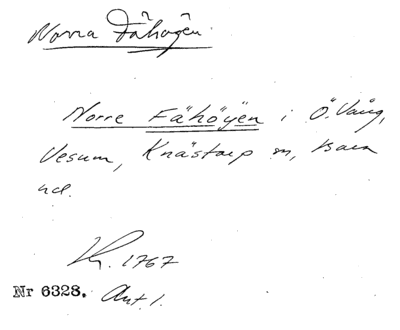 Norra Fähögen.
Norre Fähöÿen i Ö. Vång,
Vesum, Knästorp sn, Bara
hd.
Kr. 1767
Nr 6328. Ant. 1.